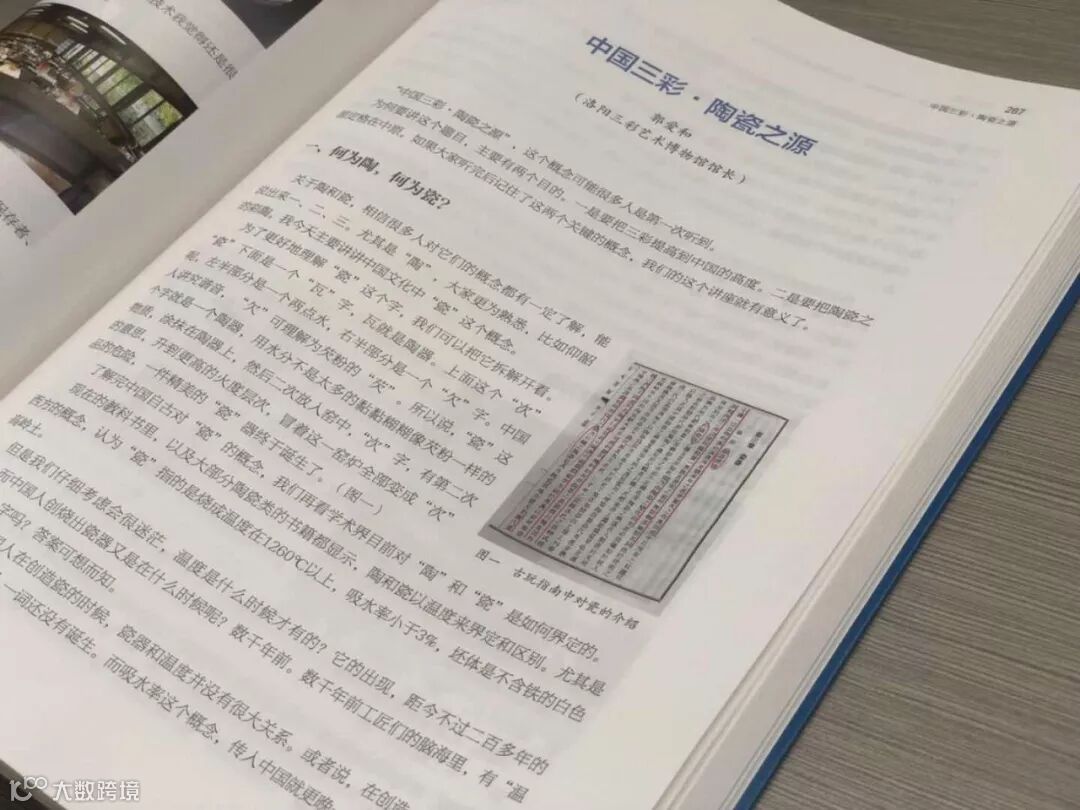 技术我觉得还是很
保存者、
267
中国三彩·陶瓷之源
中国三彩·陶瓷之源
郭爱和
（洛阳三彩艺术博物馆馆长）
“中国三彩·陶瓷之源”，这个概念可能很多人是第一次听到。
为何要讲这个题目，主要有两个目的。一是要把三彩提高到中国的高度。二是要把陶瓷之
源定格在中原。如果大家听完后记住了这两个关键的概念，我们的这个讲座就有意义了。
一、何为陶，何为瓷？
关于陶和瓷，相信很多人对它们的概念都有一定了解，能
说出来一、二、三。尤其是“陶”，大家更为熟悉，比如仰韶
的彩陶。我今天主要讲讲中国文化中“瓷”这个概念。
为了更好地理解“瓷”这个字，我们可以把它拆解开看。
“瓷”下面是一个“瓦”字，瓦就是陶器。上面这个“次”
呢，左半部分是一个两点水，右半部分是一个“欠”字。中国
人讲究谐音，“欠”可理解为芡粉的“芡”。所以说，“瓷”这
个字就是一个陶器，用水分不是太多的黏黏糊糊像芡粉一样的
物质，涂抹在陶器上，然后二次放入窑中，“次”字，有第二次
的意思，升到更高的火度层次，冒着这一窑炉全部变成“次”
品的危险，一件精美的“瓷”器终于诞生了。（图一）
了解完中国自古对“瓷”的概念，我们再看学术界目前对“陶”和“瓷”是如何界定的。
现在的教科书里，以及大部分陶瓷类的书籍都显示，陶和瓷以温度来界定和区别。尤其是
西方的概念，认为“瓷”指的是烧成温度在1260℃以上，吸水率小于3%，坯体是不含铁的白色
高岭土。
但是我们仔细考虑会很迷茫，温度是什么时候才有的？它的出现，距今不过二百多年的
而中国人创烧出瓷器又是在什么时候呢？数千年前。数千年前工匠们的脑海里，有“温
字吗？答案可想而知。
人在创造瓷的时候，瓷器和温度并没有很大关系。或者说，在创造
一词还没有诞生。而吸水率这个概念，传入中国就更晚
图一 古玩指南中对瓷的介绍
大数跨境